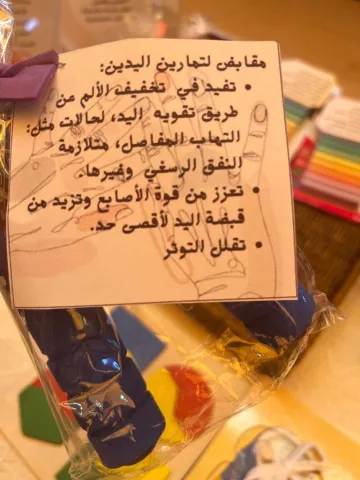 مقابض لتمارين اليدين:
• تفيد في تخفيف الألم عن
طريق تقويه اليد، لحالات مثل:
التهاب المفاصل، متلازمة
النفق الرسغي وغيرها.
• تعزز من قوة الأصابع وتزيد من
قبضة اليد لأقصى حد.
• تقلل التوتر